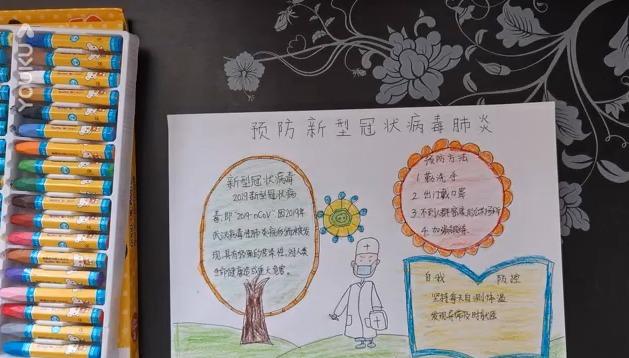 YOUKU
预防新型冠状病毒肺炎
新型冠状病毒
2019新型冠状病
毒,即"2019-nCoV"因2019年
武汉病毒性肺炎病例而被发
现,具有较强的传染性,对人类
生命健康造成重大危害。
预防方法
1.勤洗手
2.出门戴口罩
3.不到人群密集的
4.加强锻炼
自我 防控
坚持每天自测体温
发现异常及时就医